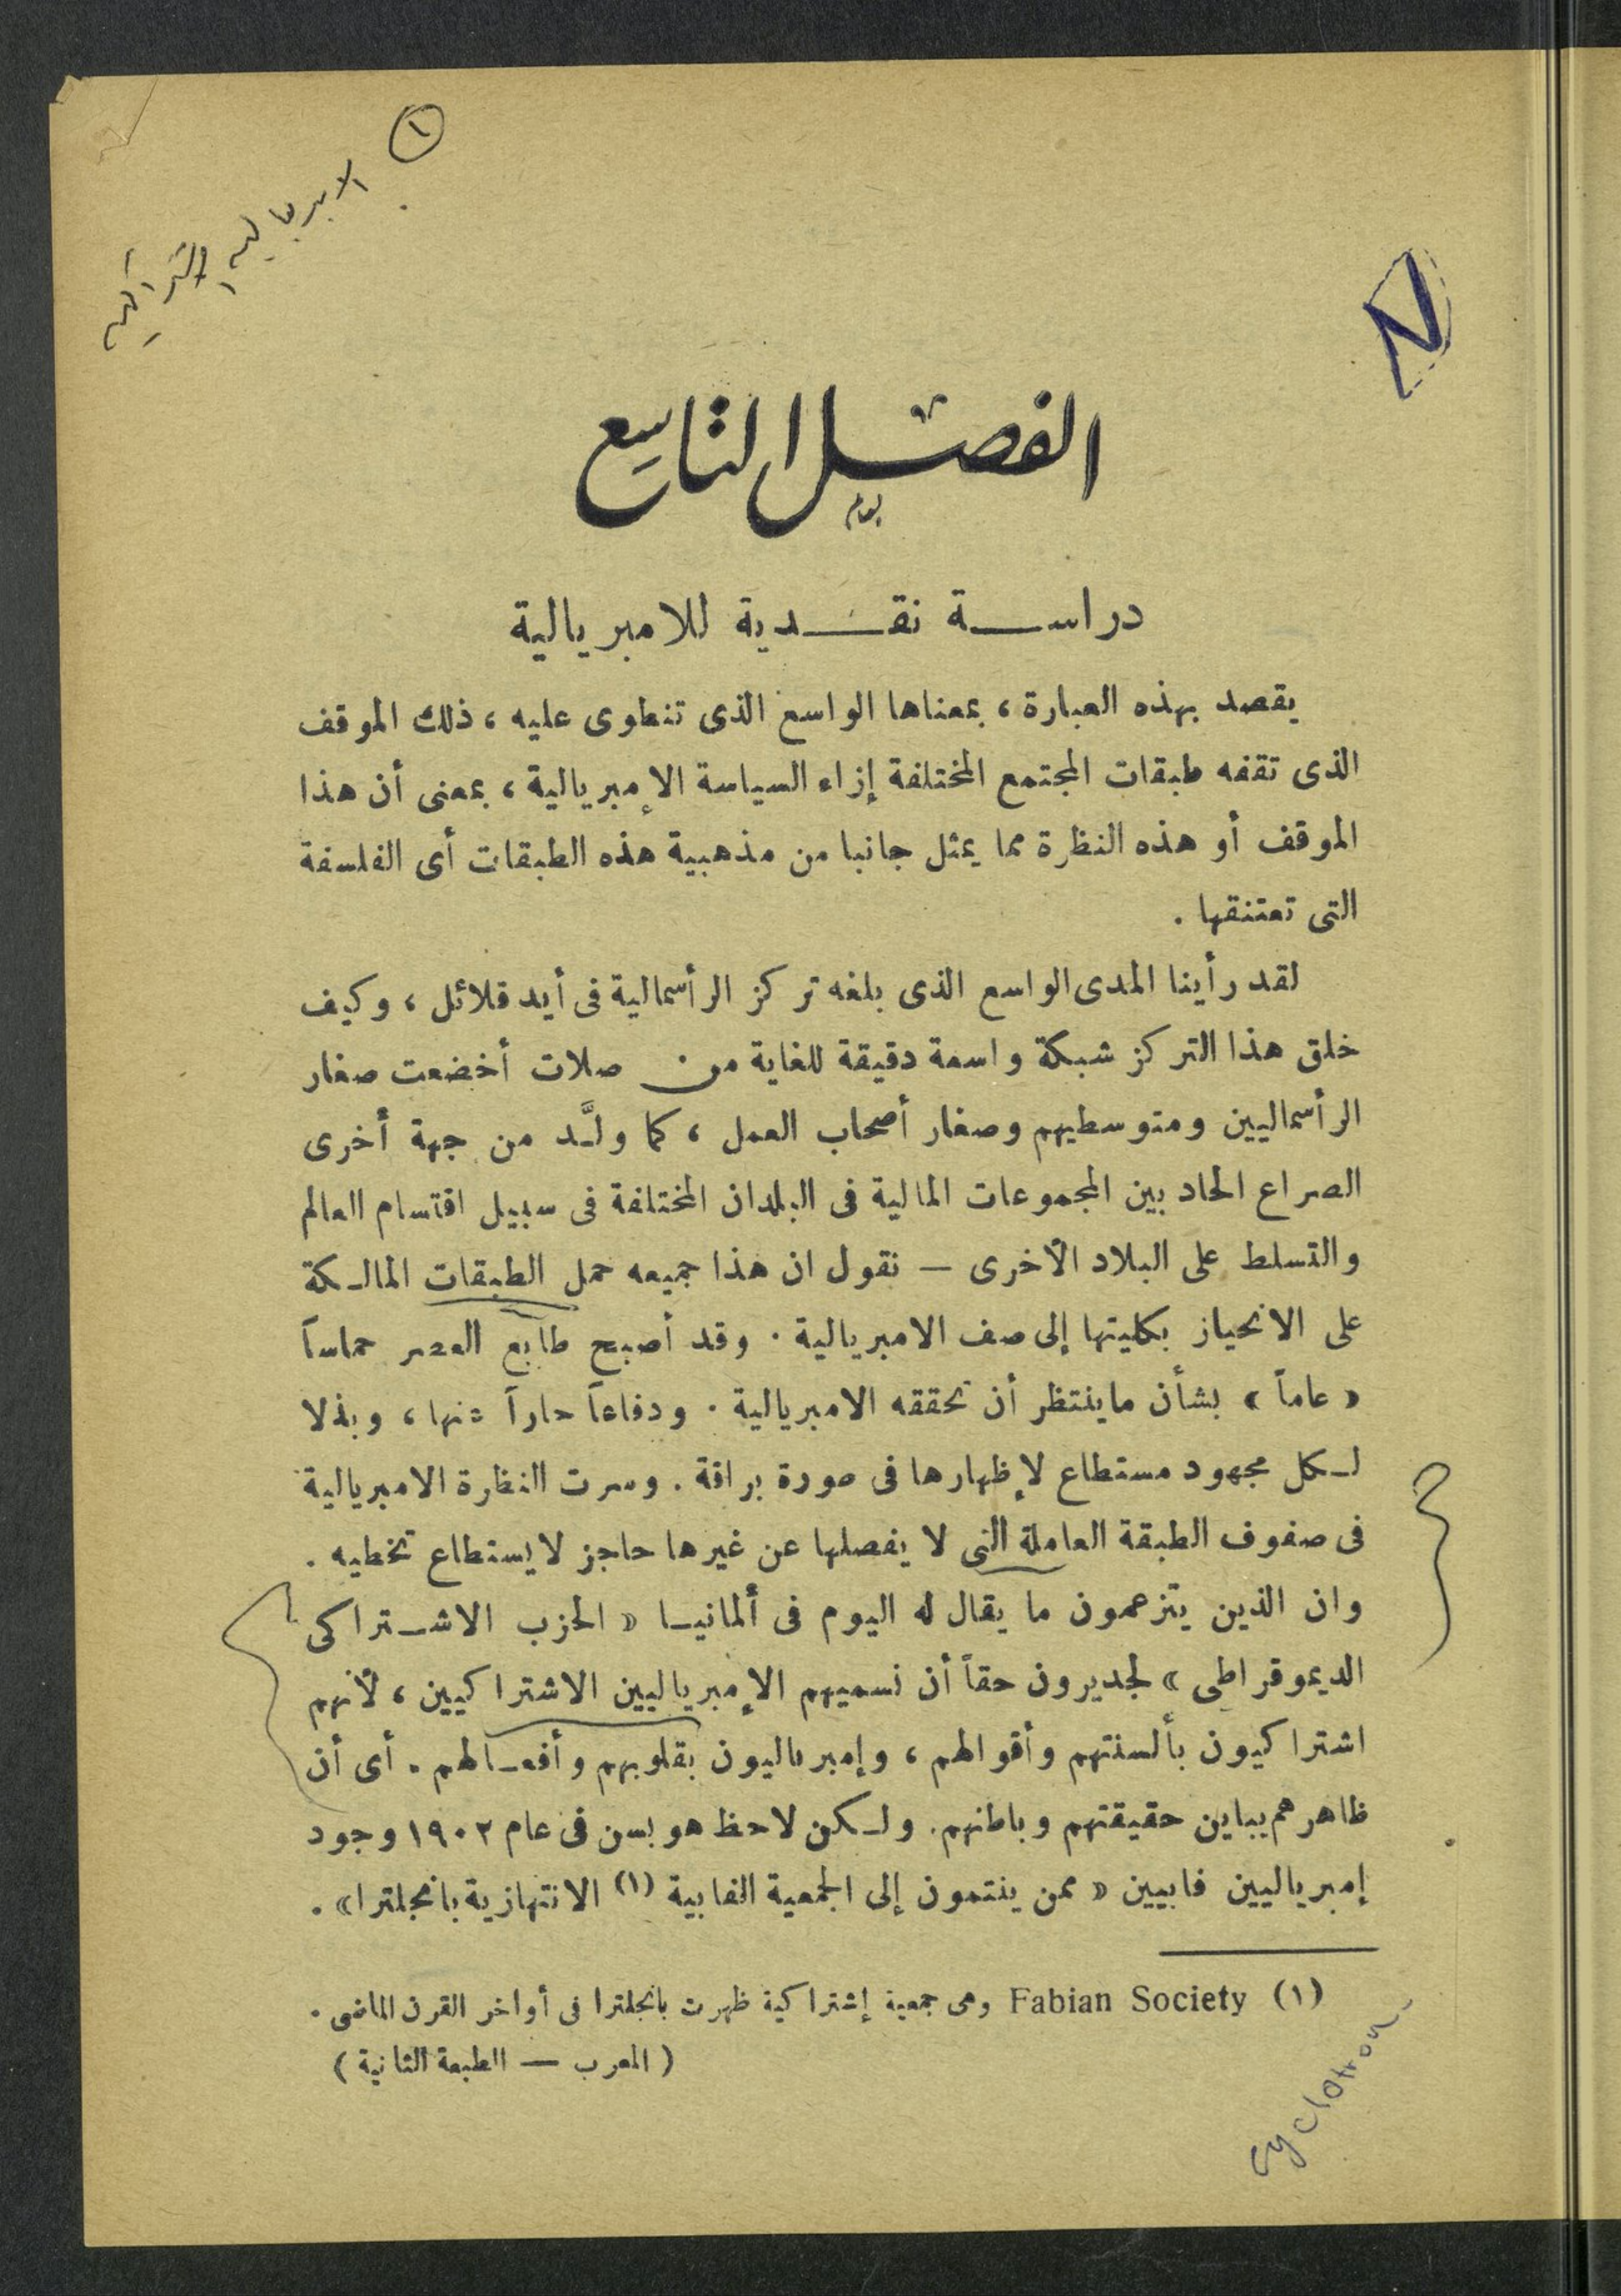 ١
الامبريالية
الاشتراكية
N
الفصل التاسع
دراسة نقدية للامبريالية
يقصد بهذه العبارة، بمعناها الواسع الذى تنطوى عليه، ذلك الموقف
الذى تقفه طبقات المجتمع المختلفة إزاء السياسة الإمبريالية، بمعنى أن هذا
الموقف أو هذه النظرة مما يمثل جانبا من مذهبية هذه الطبقات أى الفلسفة
التى تعتنقها .
لقد رأينا المدى الواسع الذى بلغه تركز الرأسمالية فى أيد قلائل، وكيف
خلق هذا التركز شبكة واسعة دقيقة للغاية من صلات أخضعت صغار
الرأسماليين ومتوسطيهم وصغار أصحاب العمل، كما ولَّد من جهة أخرى
الصراع الحاد بين المجموعات المالية فى البلدان المختلفة فى سبيل اقتسام العالم
والتسلط على البلاد الأخرى — نقول ان هذا جميعه حمل الطبقات المالكة
على الانحياز بكليتها إلى صف الامبريالية . وقد أصبح طابع العصر حماساً
« عاماً » بشأن ماينتظر أن تحققه الامبريالية . ودفاعاً حاراً عنها، وبذلا
لكل مجهود مستطاع لإظهارها فى صورة براقة . وسرت النظرة الامبريالية
فى صفوف الطبقة العاملة التى لا يفصلها عن غيرها حاجز لايستطاع تخطيه .
وان الذين يتزعمون ما يقال له اليوم فى ألمانيا « الحزب الاشتراكى
الديموقراطى » لجديرون حقاً أن نسميهم الإمبرياليين الاشتراكيين، لأنهم
اشتراكيون بألسنتهم وأقوالهم، وإمبرياليون بقلوبهم وأفعالهم . أى أن
ظاهرهم يباين حقيقتهم وباطنهم. ولكن لاحظ هوبسن فى عام ١٩٠٢ وجود
إمبرياليين فابيين « ممن ينتمون إلى الجمعية الفابية (١) الانتهازية بانجلترا» .
(١) Fabian Society وهى جمعية إشتراكية ظهرت بانجلترا فى أواخر القرن الماضى .
( المعرب — الطبعة الثانية )
cyclotron